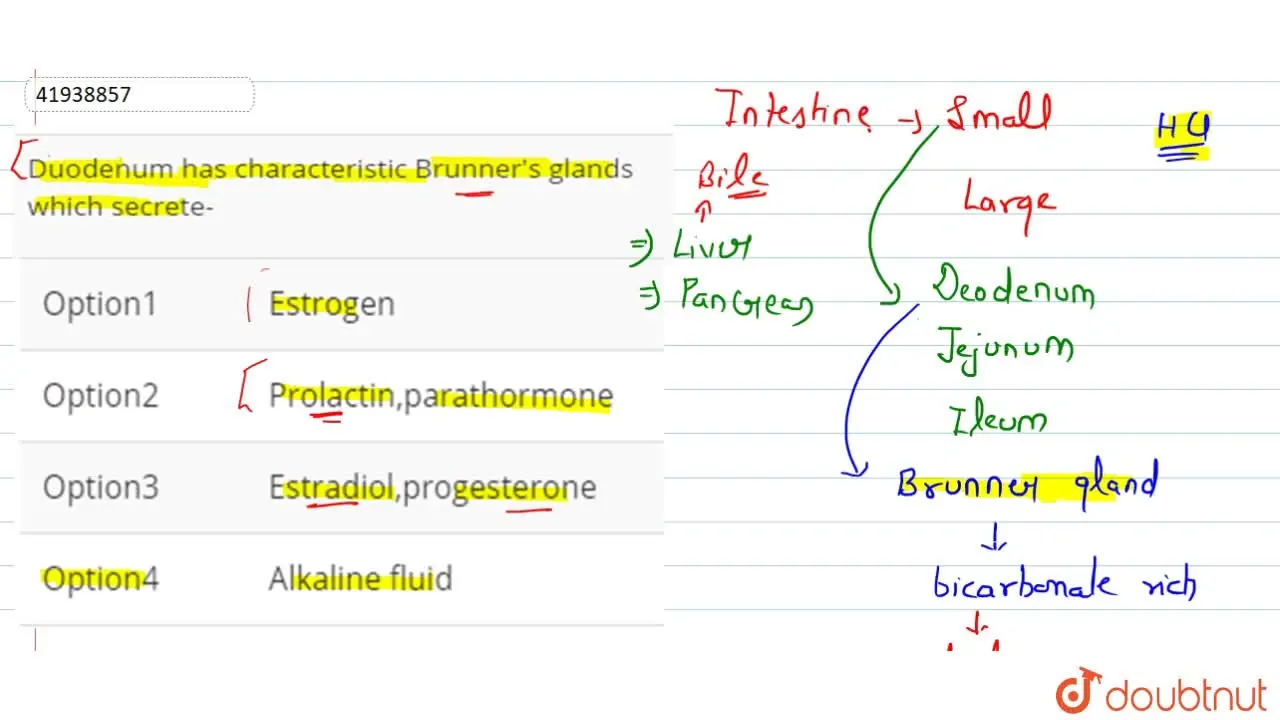 41938857
Duodenum has characteristic Brunner's glands
which secrete-
Option1 Estrogen
Option2 Prolactin,parathormone
Option3 Estradiol,progesterone
Option4 Alkaline fluid
Intestine → Small
Large
HCl
Bile
↑
⇒ Liver
⇒ Pancreas
Deodenum
Jejunum
Ileum
Brunner gland
↓
bicarbonate rich
↓
doubtnut